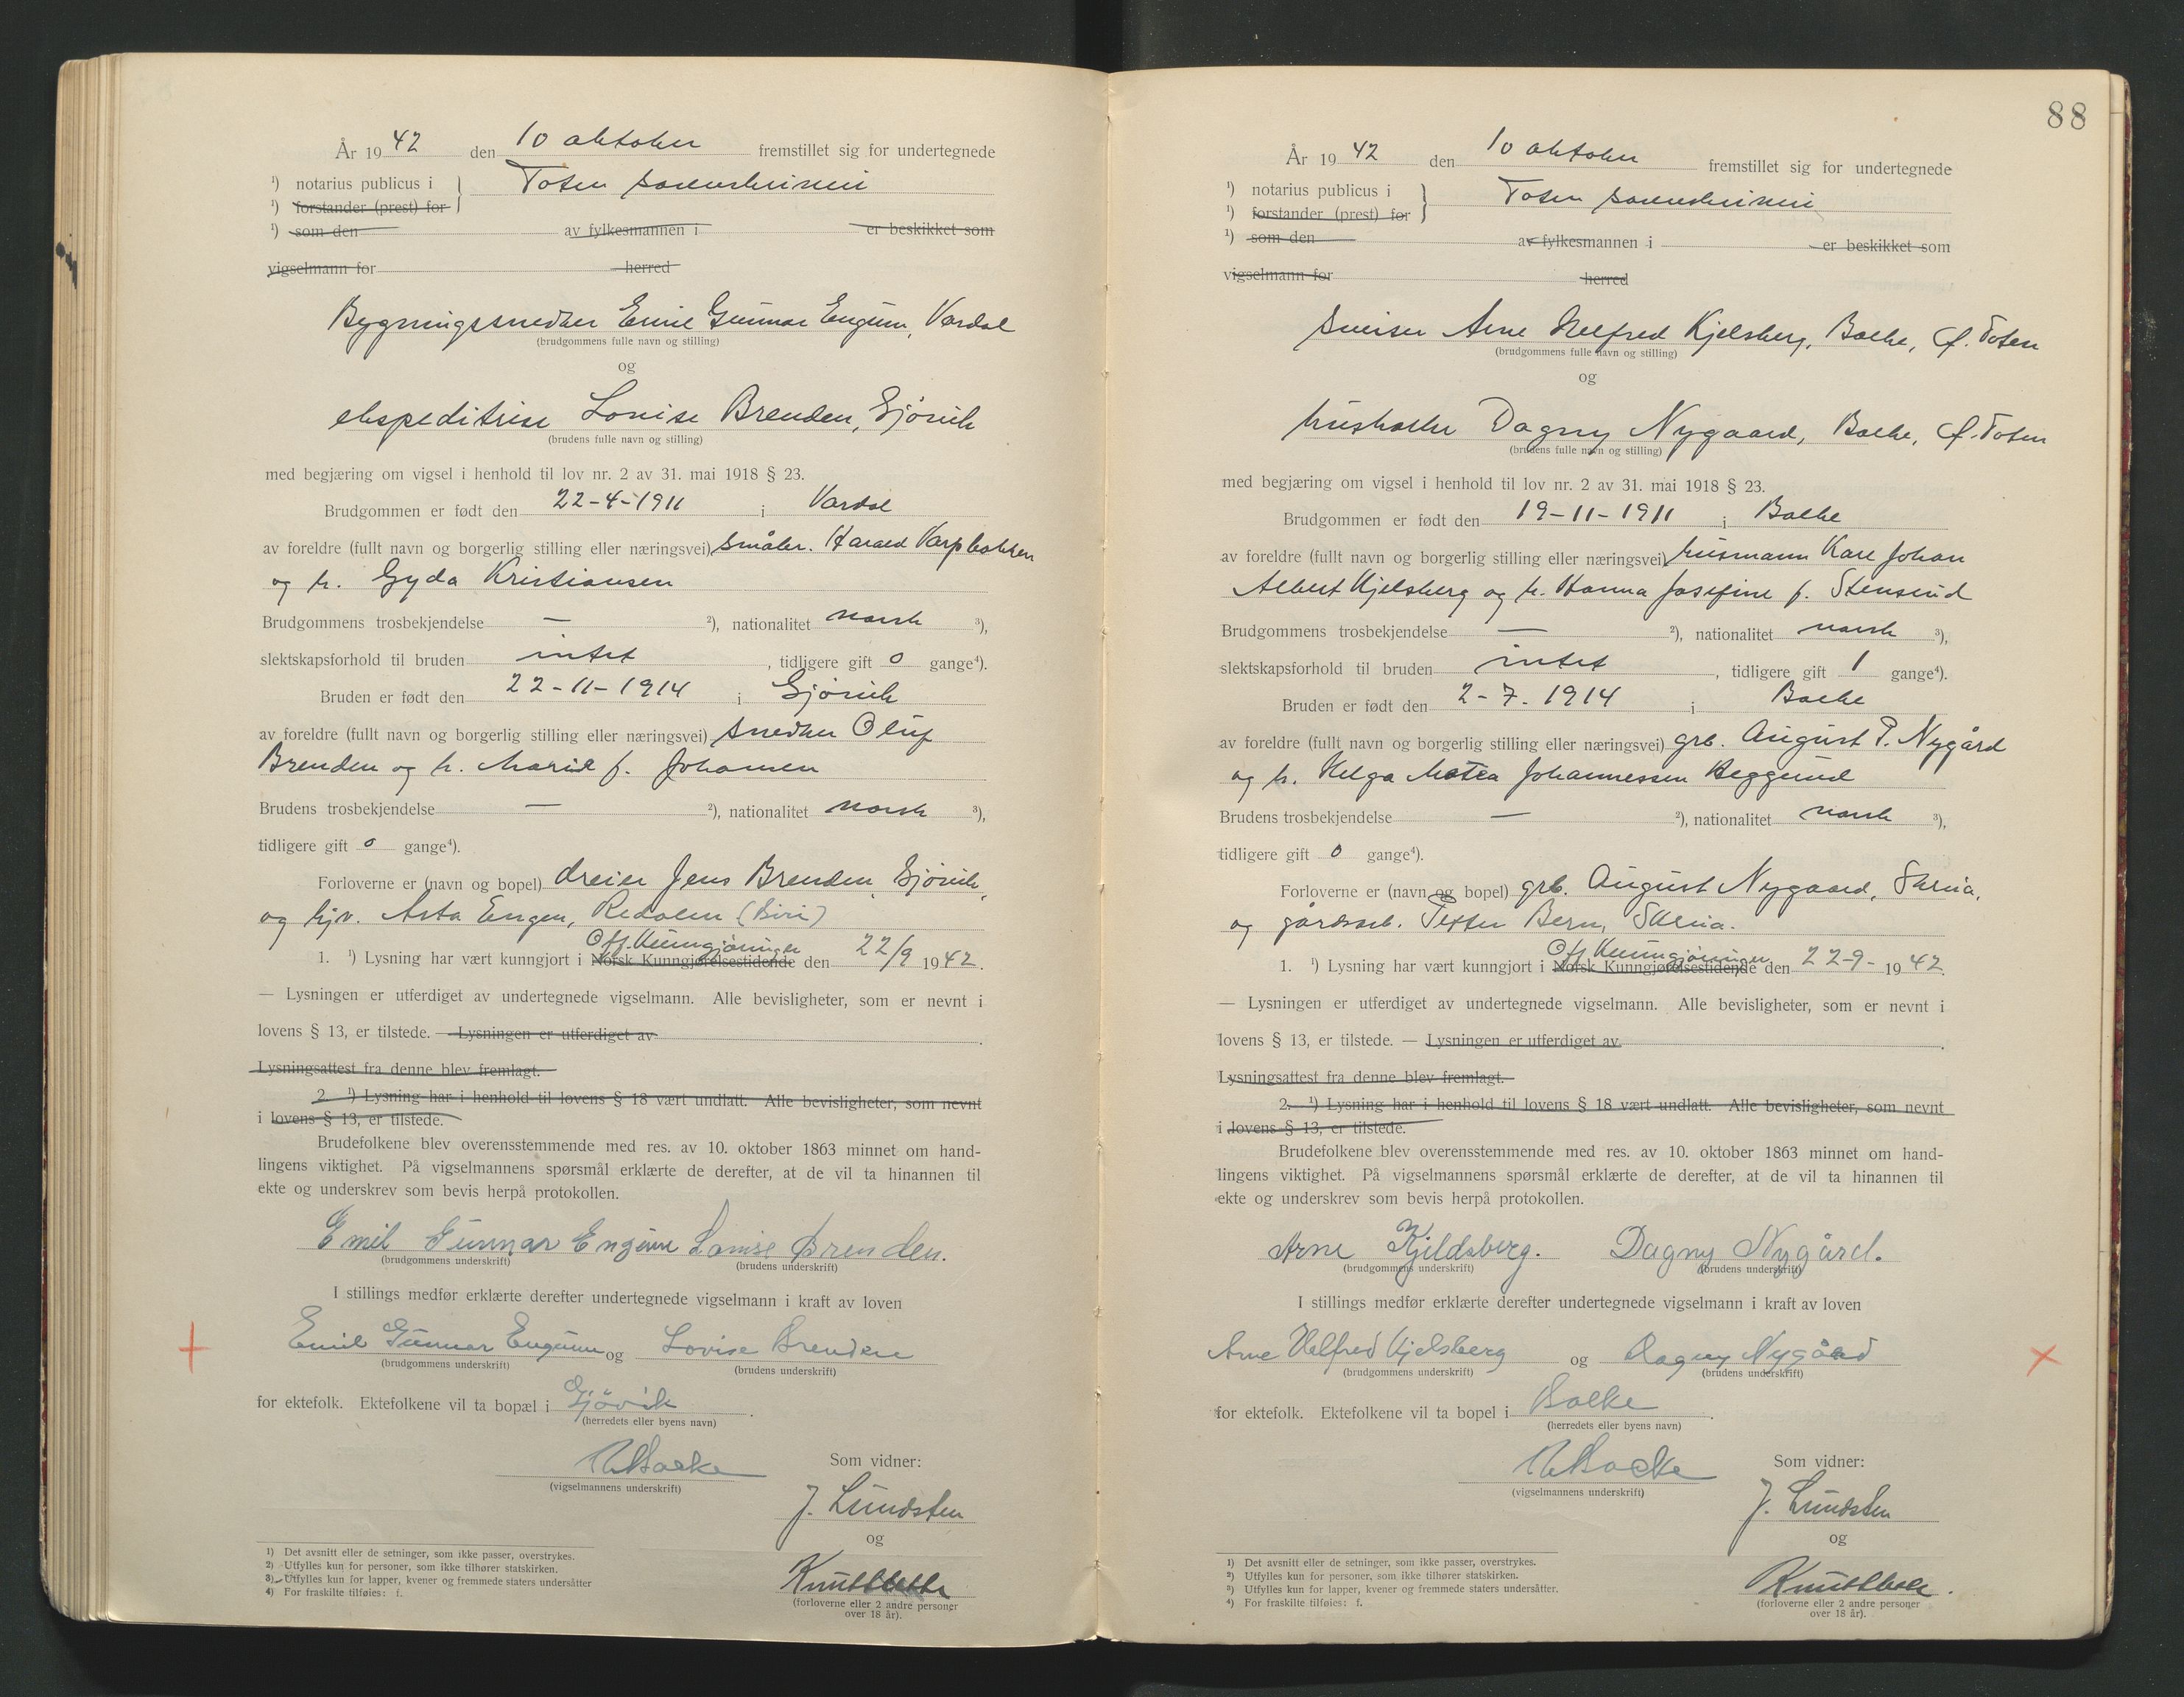 År 19 42 den 10 oktober fremstillet sig for undertegnede
¹) notarius publicus i Toten sorenskriveri
¹) forstander (prest) for
¹) som den av fylkesmannen i er beskikket som
vigselmann for herred
Bygningssnedker Emil Gunnar Engum, Vardal
(brudgommens fulle navn og stilling)
og
ekspeditrise Lovise Brenden, Gjövik
(brudens fulle navn og stilling)
med begjæring om vigsel i henhold til lov nr. 2 av 31. mai 1918 § 23.
Brudgommen er født den 22-4-1911 i Vardal
av foreldre (fullt navn og borgerlig stilling eller næringsvei) småbr. Harald Varpbakken
og h. Gyda Kristiansen
Brudgommens trosbekjendelse — ²), nationalitet norsk ³),
slektskapsforhold til bruden intet, tidligere gift 0 gange⁴).
Bruden er født den 22-11-1914 i Gjövik
av foreldre (fullt navn og borgerlig stilling eller næringsvei) snedker Oluf
Brenden og h. Marie f. Johansen
Brudens trosbekjendelse — ²), nationalitet norsk ³),
tidligere gift 0 gange⁴).
Forloverne er (navn og bopel) dreier Jens Brenden, Gjövik,
og hjv. Asta Engen, Redalen (Biri)
Off. Kunngjøringer
1. ¹) Lysning har vært kunngjort i Norsk Kunngjørelsestidende den 22/9 1942.
— Lysningen er utferdiget av undertegnede vigselmann. Alle bevisligheter, som er nevnt i
lovens § 13, er tilstede. — Lysningen er utferdiget av
Lysningsattest fra denne blev fremlagt.
2. ¹) Lysning har i henhold til lovens § 18 vært undlatt. Alle bevisligheter, som nevnt
i lovens § 13, er tilstede.
Brudefolkene blev overensstemmende med res. av 10. oktober 1863 minnet om hand-
lingens viktighet. På vigselmannens spørsmål erklærte de derefter, at de vil ta hinannen til
ekte og underskrev som bevis herpå protokollen.
Emil Gunnar Engum Lovise Brenden.
(brudgommens underskrift) (brudens underskrift)
I stillings medfør erklærte derefter undertegnede vigselmann i kraft av loven
Emil Gunnar Engum og Lovise Brenden
(brudgommens underskrift) (brudens underskrift)
for ektefolk. Ektefolkene vil ta bopæl i Gjövik.
(herredets eller byens navn)
Som vidner:
(vigselmannens underskrift)
J. Lundsten
og
(forloverne eller 2 andre personer
over 18 år).
¹) Det avsnitt eller de setninger, som ikke passer, overstrykes.
²) Utfylles kun for personer, som ikke tilhører statskirken.
3) Utfylles kun for lapper, kvener og fremmede staters undersåtter
4) For fraskilte tilføies: f.
88
År 19 42 den 10 oktober fremstillet sig for undertegnede
¹) notarius publicus i Toten sorenskriveri
¹) forstander (prest) for
¹) som den av fylkesmannen i er beskikket som
vigselmann for herred
sveiser Arne Helfred Kjelsberg, Balke, Ø. Toten
(brudgommens fulle navn og stilling)
og
husholder Dagny Nygaard, Balke, Ø. Toten
(brudens fulle navn og stilling)
med begjæring om vigsel i henhold til lov nr. 2 av 31. mai 1918 § 23.
Brudgommen er født den 19-11-1911 i Balke
av foreldre (fullt navn og borgerlig stilling eller næringsvei) husmann Karl Johan
Albert Kjelsberg og h. Hanna Josefine f. Stensrud
Brudgommens trosbekjendelse — ²), nationalitet norsk ³),
slektskapsforhold til bruden intet, tidligere gift 1 gange⁴).
Bruden er født den 2-7. 1914 i Balke
av foreldre (fullt navn og borgerlig stilling eller næringsvei) grb. August P. Nygård
og h. Helga Matea Johannessen Heggund
Brudens trosbekjendelse — ²), nationalitet norsk ³),
tidligere gift 0 gange⁴).
Forloverne er (navn og bopel) grb. August Nygaard, Skreia,
og gårdsarb. Petter Bern, Skreia.
Off Kunngjøringer
1. ¹) Lysning har vært kunngjort i Norsk Kunngjørelsestidende den 22-9- 1942.
— Lysningen er utferdiget av undertegnede vigselmann. Alle bevisligheter, som er nevnt i
lovens § 13, er tilstede. — Lysningen er utferdiget av
Lysningsattest fra denne blev fremlagt.
2. ¹) Lysning har i henhold til lovens § 18 vært undlatt. Alle bevisligheter, som nevnt
i lovens § 13, er tilstede.
Brudefolkene blev overensstemmende med res. av 10. oktober 1863 minnet om hand-
lingens viktighet. På vigselmannens spørsmål erklærte de derefter, at de vil ta hinannen til
ekte og underskrev som bevis herpå protokollen.
Arne Kjeldsberg. Dagny Nygård.
(brudgommens underskrift) (brudens underskrift)
I stillings medfør erklærte derefter undertegnede vigselmann i kraft av loven
Arne Helfred Kjelsberg og Dagny Nygård
(brudgommens underskrift) (brudens underskrift)
for ektefolk. Ektefolkene vil ta bopel i Balke.
(herredets eller byens navn)
Som vidner:
(vigselmannens underskrift)
J. Lundsten
og
(forloverne eller 2 andre personer
over 18 år).
¹) Det avsnitt eller de setninger, som ikke passer, overstrykes.
²) Utfylles kun for personer, som ikke tilhører statskirken.
³) Utfylles kun for lapper, kvener og fremmede staters undersåtter.
⁴) For fraskilte tilføies: f.